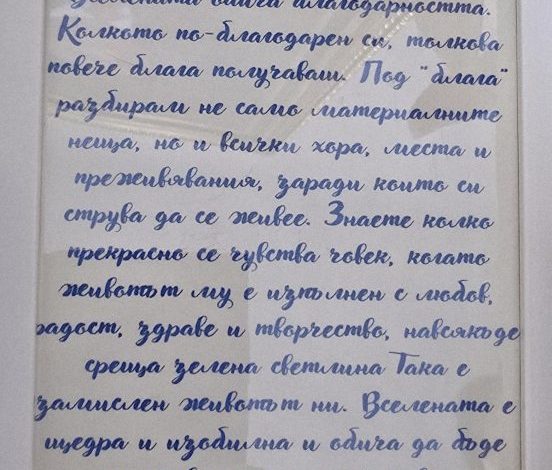 Вселената обича благодарността.
Колкото по-благодарен си, толкова
повече блага получаваш. Под "блага"
разбирам не само материалните
неща, но и всички хора, места и
преживявания, заради които си
струва да се живее. Знаете колко
прекрасно се чувства човек, когато
животът му е изпълнен с любов,
радост, здраве и творчество, навсякъде
среща зелена светлина Така е
замислен животът ни. Вселената е
щедра и изобилна и обича да бъде